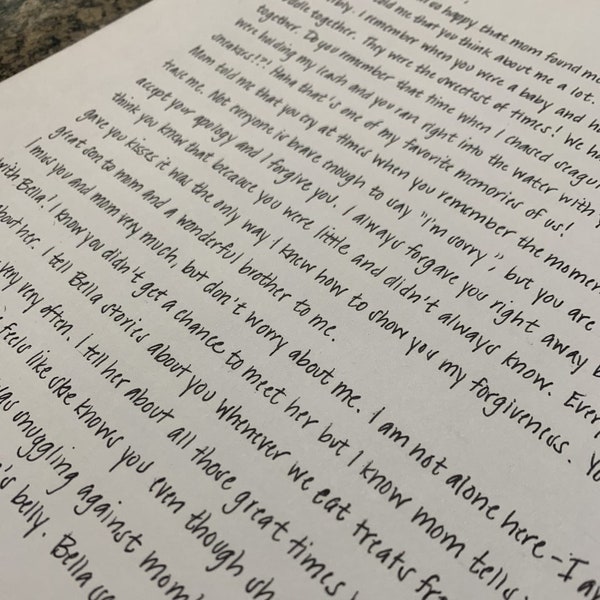 so happy that mom found me
told me that you think about me a lot.
I remember when you were a baby and
together. They were the sweetest of times! We
together. Do you remember that time when I chased
were holding my leash and you ran right into the water with
sneakers!?! Haha that's one of my favorite memories of us!
Mom told me that you cry at times when you remember the
tease me. Not everyone is brave enough to say "I'm sorry", but you are
accept your apology and I forgive you. I always forgave you right away
think you knew that because you were little and didn't always know.
gave you kisses it was the only way I knew how to show you my forgiveness.
great son to mom and a wonderful brother to me.
I miss you and mom very much, but don't worry about me. I am not alone here - I
with Bella! I know you didn't get a chance to meet her but I know mom tells
about her. I tell Bella stories about you whenever we eat treats
very very often. I tell her about all those great times
feels like she knows you even though
was snuggling against
belly. Bella